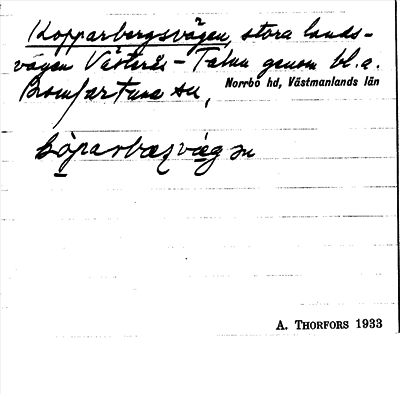 Kopparbergsvägen, stora lands-
vägen Västerås - Falun genom bl. a.
Romfartuna sn,
Norrbo hd, Västmanlands län
kòparbærjvæ̀gən
A. THORFORS 1933